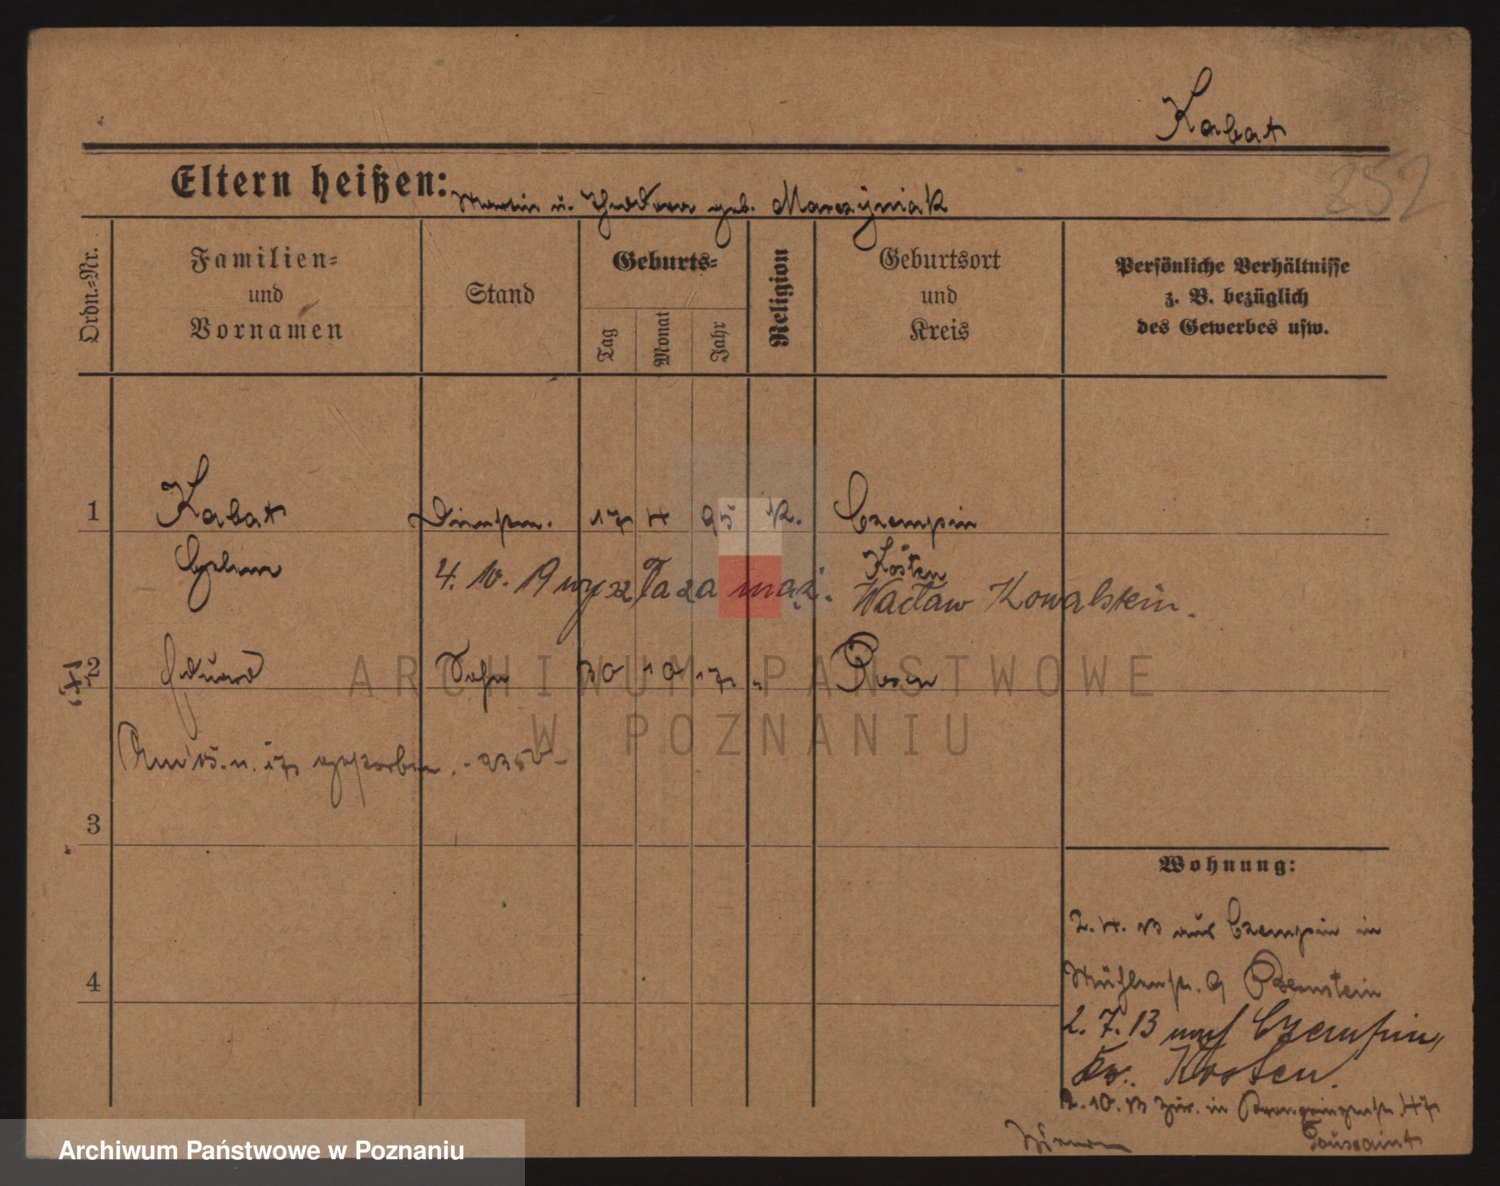 Kabat
252
Eltern heißen: Martin u. Theodora geb. Marszyniak
Ordn.-Nr.
Familien- und Vornamen
Stand
Geburts-
Tag
Monat
Jahr
Religion
Geburtsort und Kreis
Persönliche Verhältnisse z. B. bezüglich des Gewerbes usw.
1 Kabat 17 4 95 K. Czempin
Kosten
4. 10. 19 wyszła za mąż. Wacław Kowalskim.
2 Eduard Sohn 30 10 17 " Posen
Am 15. 11. 17 gestorben.
3
4
Wohnung:
2. 4. 13 aus Czempin in
Mühlenstr. 9 Bernstein
2. 7. 13 nach Czempin,
Kr. Kosten.
2. 10. 13 zur. in Kronprinzenstr. 47
Toussaint
ARCHIWUM PAŃSTWOWE
W POZNANIU
Archiwum Państwowe w Poznaniu